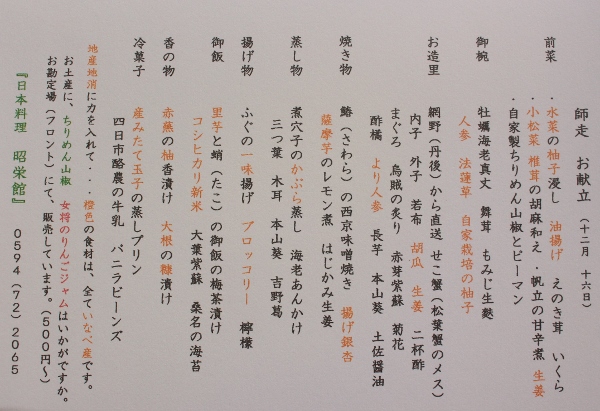 師走　お献立　（十二月　十六日）
前菜　・水菜の柚子浸し　油揚げ　えのき茸　いくら
・小松菜　椎茸の胡麻和え　・帆立の甘辛煮　生姜
・自家製ちりめん山椒とピーマン
御椀　牡蠣海老真丈　舞茸　もみじ生麩
人参　法蓮草　自家栽培の柚子
お造里　網野（丹後）から直送　せこ蟹（松葉蟹のメス）
内子　外子　若布　胡瓜　生姜　二杯酢
まぐろ　烏賊の炙り　赤芽紫蘇　菊花
酢橘　より人参　長芋　本山葵　土佐醤油
焼き物　鰆（さわら）の西京味噌焼き　揚げ銀杏
薩摩芋のレモン煮　はじかみ生姜
蒸し物　煮穴子のかぶら蒸し　海老あんかけ
三つ葉　木耳　本山葵　吉野葛
揚げ物　ふぐの一味揚げ　ブロッコリー　檸檬
御飯　里芋と蛸（たこ）の御飯の梅茶漬け
コシヒカリ新米　大葉紫蘇　桑名の海苔
香の物　赤蕪の柚香漬け　大根の糠漬け
冷菓子　産みたて玉子の蒸しプリン
四日市酪農の牛乳　バニラビーンズ
地産地消に力を入れて・・・橙色の食材は、全ていなべ産です。
お土産に、ちりめん山椒　女将のりんごジャムはいかがですか。
お勘定場（フロント）にて、販売しています。（５００円～）
『日本料理　昭栄館』　０５９４（７２）２０６５